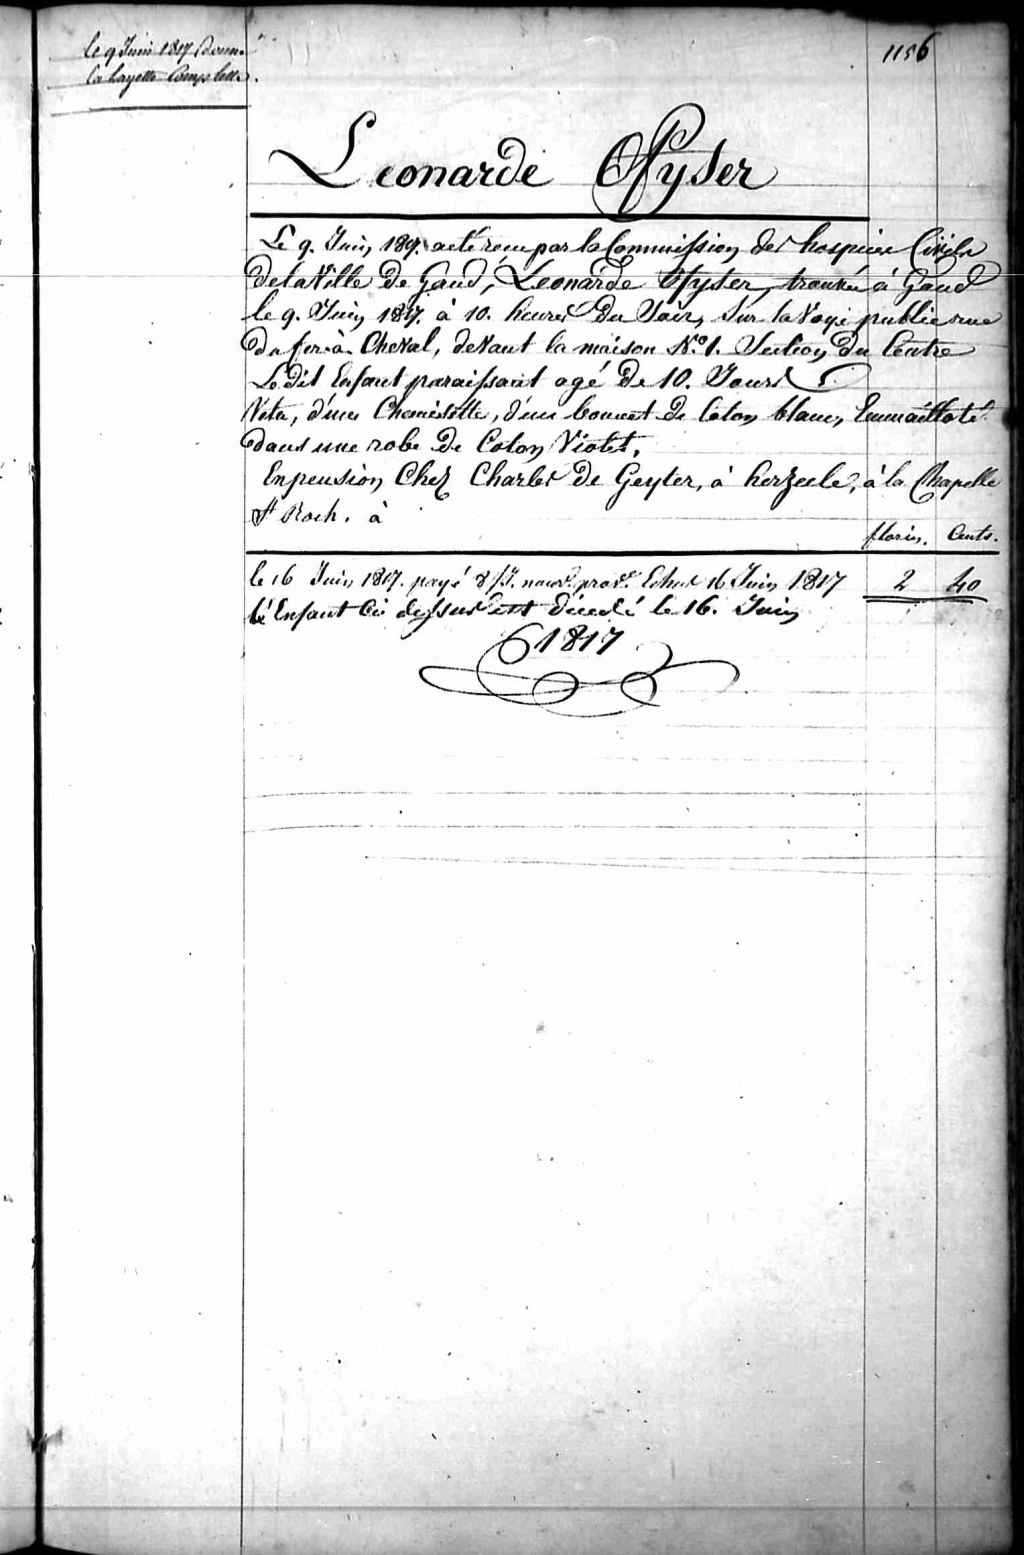 le 9 Juin 1817 Donné
la layette Complette.
1156
Leonarde Ofyser
Le 9. Juin 1817. a eté recu par la Commission des hospices Civils
de la Ville de Gand, Leonarde Ofyser, trouvée à Gand
le 9. Juin 1817. à 10. heures Du Soir, Sur la Voye publie rue
du fer à Cheval, devant la maison N.º 1. Section du Centre
Le dit Enfant paraissant agé de 10. Jours
Vetu, d'une Chemisette, d'un bonnet de Coton blanc, Emmailloté
dans une robe de Coton Violet,
En pension Chez Charles de Geyter, à herzeele, à la Chapelle
St Roch. à
florins. Cents.
le 16 Juin 1817. payé 8/J. nour. prov. Echus 16 Juin 1817 2 40
l'Enfant Ci dessus est décedé le 16. Juin
1817